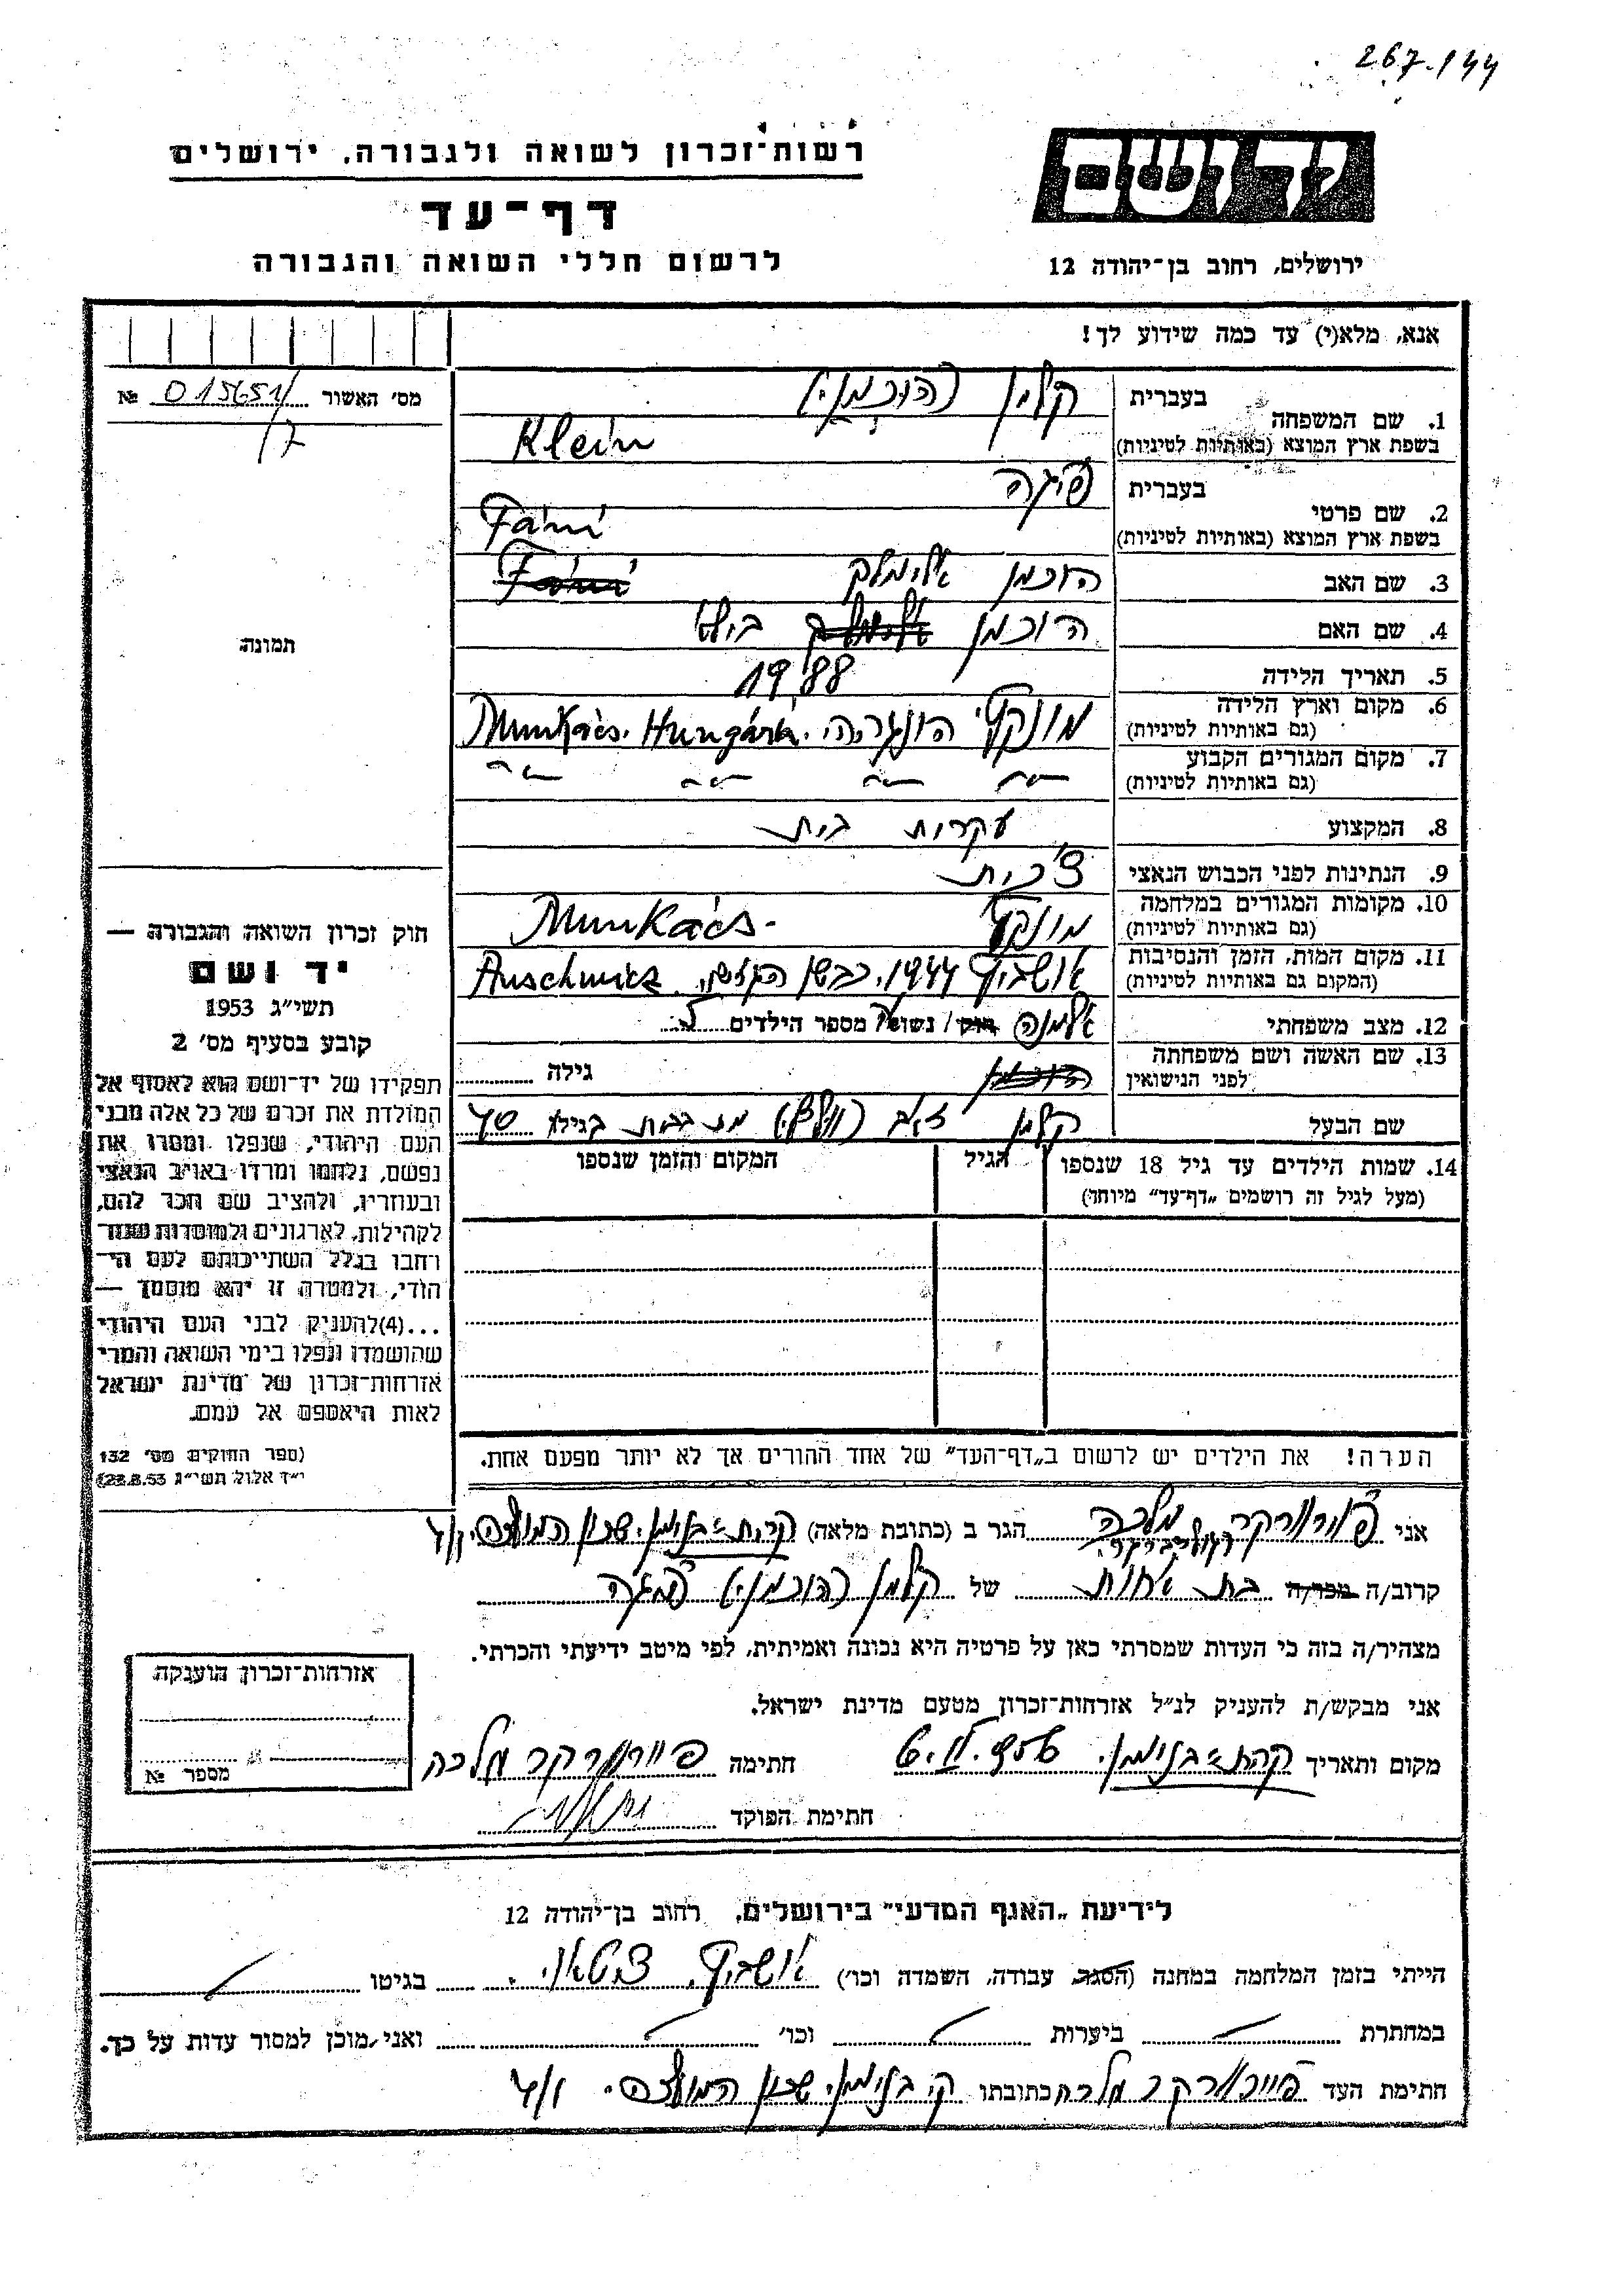 267.144
יד ושם
רשות־זכרון לשואה ולגבורה, ירושלים
דף־עד
לרשום חללי השואה והגבורה
ירושלים, רחוב בן־יהודה 12
אנא, מלא(י) עד כמה שידוע לך!
מס׳ האשור № 015651/
17
1. שם המשפחה בעברית קלין (הוכמן)
בשפת ארץ המוצא (באותיות לטיניות) Klein
2. שם פרטי בעברית פיגה
בשפת ארץ המוצא (באותיות לטיניות) Fáni
3. שם האב הוכמן אלימלך Fáni
4. שם האם הוכמן אלימלך בילא
5. תאריך הלידה 1988
6. מקום וארץ הלידה (גם באותיות לטיניות) מונקץ׳ הונגריה. Munkács. Hungária.
7. מקום המגורים הקבוע
(גם באותיות לטיניות)
8. המקצוע עקרות בית
9. הנתינות לפני הכבוש הנאצי צ׳כית
10. מקומות המגורים במלחמה (גם באותיות לטיניות) מונקץ Munkács.
11. מקום המות, הזמן והנסיבות (המקום גם באותיות לטיניות) אושביץ 1944. כבשן הגזים.
12. מצב משפחתי אלמנה רוק / נשוי מספר הילדים
13. שם האשה ושם משפחתה לפני הנישואין הוכמן גילה
שם הבעל קלין זאב (וולף) מת במות בגילא 40
14. שמות הילדים עד גיל 18 שנספו
(מעל לגיל זה רושמים „דף־עד” מיוחד)
הגיל
המקום והזמן שנספו
תמונה
חוק זכרון השואה והגבורה —
יד ושם
תשי״ג 1953
קובע בסעיף מס׳ 2
תפקידו של יד־ושם הוא לאסוף אל
המולדת את זכרם של כל אלה מבני
העם היהודי, שנפלו ומסרו את
נפשם, נלחמו ומרדו באויב הנאצי
ובעוזריו, ולהציב שם וזכר להם,
לקהילות, לארגונים ולמוסדות שנח־
רבו בגלל השתייכותם לעם הי־
הודי, ולמטרה זו יהא מוסמך —
...(4) להעניק לבני העם היהודי
שהושמדו ונפלו בימי השואה והמרי
אזרחות־זכרון של מדינת ישראל
לאות היאספם אל עמם.
(ספר החוקים מס׳ 132
י״ד אלול תשי״ג 28.8.53)
הערה! את הילדים יש לרשום ב„דף־העד” של אחד ההורים אך לא יותר מפעם אחת.
אני פוירורקר מלכה הגר ב (כתובת מלאה) קרית־בנימין. שכון
קרוב/ה מכר/ה בת אחות של קלין (הוכמן) פיגה
מצהיר/ה בזה כי העדות שמסרתי כאן על פרטיה היא נכונה ואמיתית, לפי מיטב ידיעתי והכרתי.
אני מבקש/ת להעניק לנ״ל אזרחות־זכרון מטעם מדינת ישראל.
מקום ותאריך קרית־בנימין. חתימה פוירורקר מלכה
חתימת הפוקד
אזרחות־זכרון הוענקה
מספר №
לידיעת „האגף המדעי” בירושלים, רחוב בן־יהודה 12
הייתי בזמן המלחמה במחנה (הסגר, עבודה, השמדה וכו׳) אושביץ. בגיטו
במחתרת ביערות וכו׳ ואני מוכן למסור עדות על כך.
חתימת העד פוירורקר מלכה כתובתו ק׳ בנימין שכון